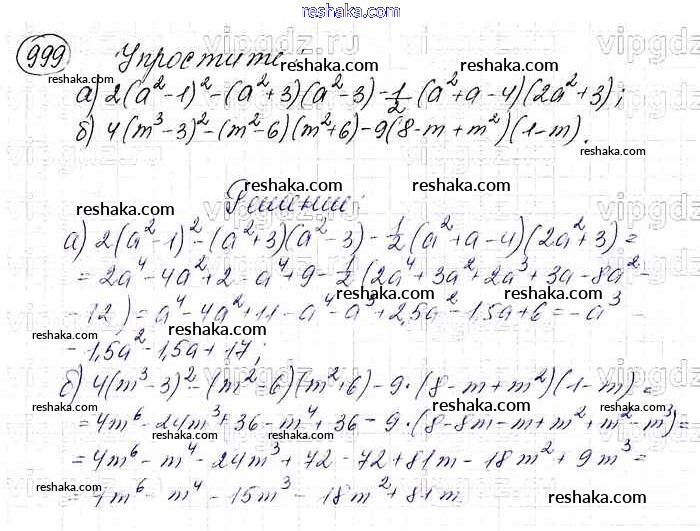 reshaka.com
999 Упростите:
а) 2(a²-1)²-(a²+3)(a²-3)-1/2(a²+a-4)(2a²+3);
б) 4(m³-3)²-(m²-6)(m²+6)-9(8-m+m²)(1-m).
Решение:
а) 2(a²-1)²-(a²+3)(a²-3)-1/2(a²+a-4)(2a²+3)=
=2a⁴-4a²+2-a⁴+9-1/2(2a⁴+3a²+2a³+3a-8a²-
-12)=a⁴-4a²+11-a⁴-a³+2,5a²-1,5a+6=-a³-
-1,5a²-1,5a+17;
б) 4(m³-3)²-(m²-6)(m²+6)-9·(8-m+m²)(1-m)=
=4m⁶-24m³+36-m⁴+36-9·(8-8m-m+m²+m²-m³)=
=4m⁶-m⁴-24m³+72-72+81m-18m²+9m³=
=4m⁶-m⁴-15m³-18m²+81m
vipgdz.ru
reshaka.com